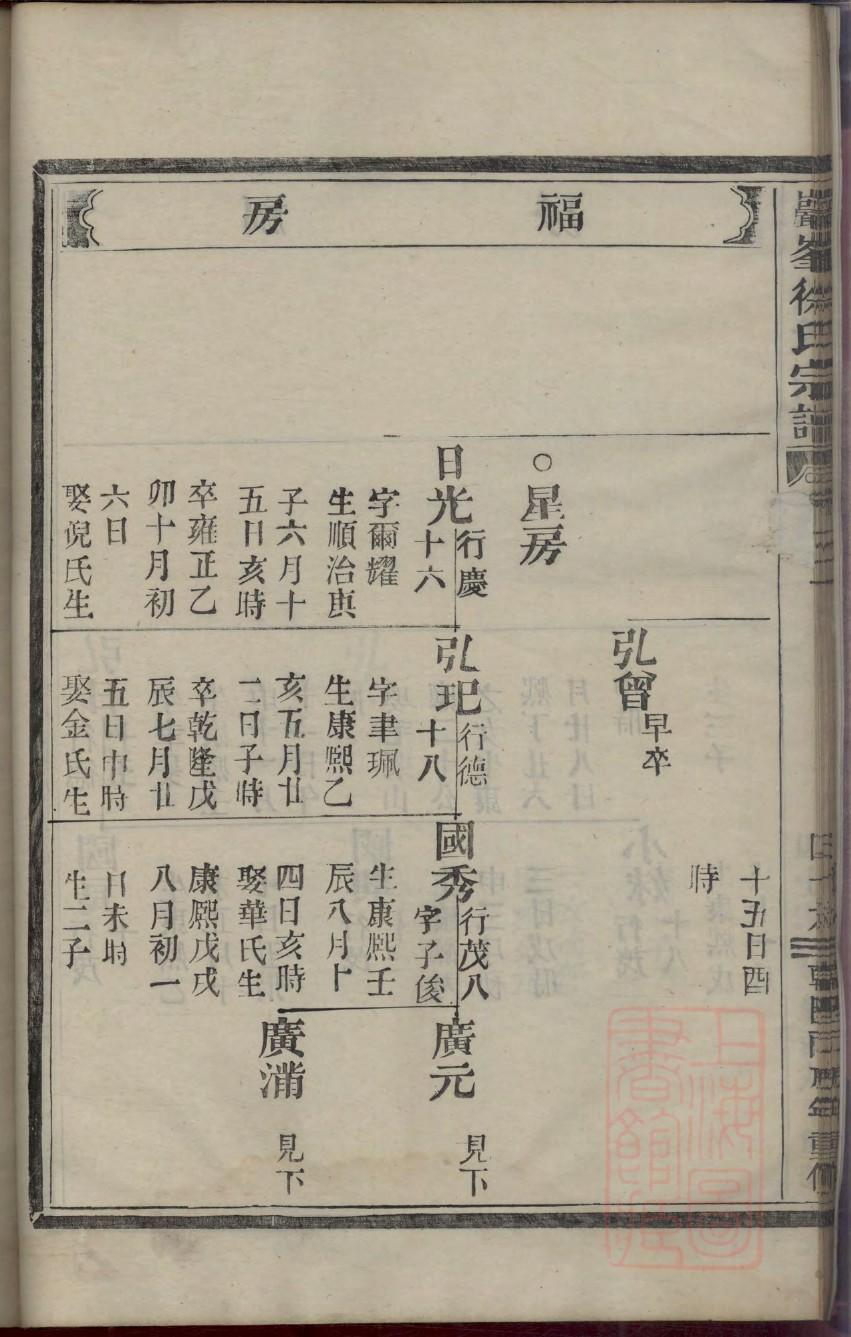 福房
徐氏宗譜
十五日酉
時
弘曾早卒
○星房
日光行慶
十六
字爾耀
生順治庚
子六月十
五日亥時
卒雍正乙
卯十月初
六日
娶倪氏生
弘玘行德
十八
字聿珮
生康熙乙
亥五月廿
二日子時
卒乾隆戊
辰七月廿
五日申時
娶金氏生
國秀行茂八
字子後
生康熙壬
辰八月十
四日亥時
娶華氏生
康熙戊戌
八月初一
日未時
生二子
廣元見下
廣满見下
上海圖
書館藏